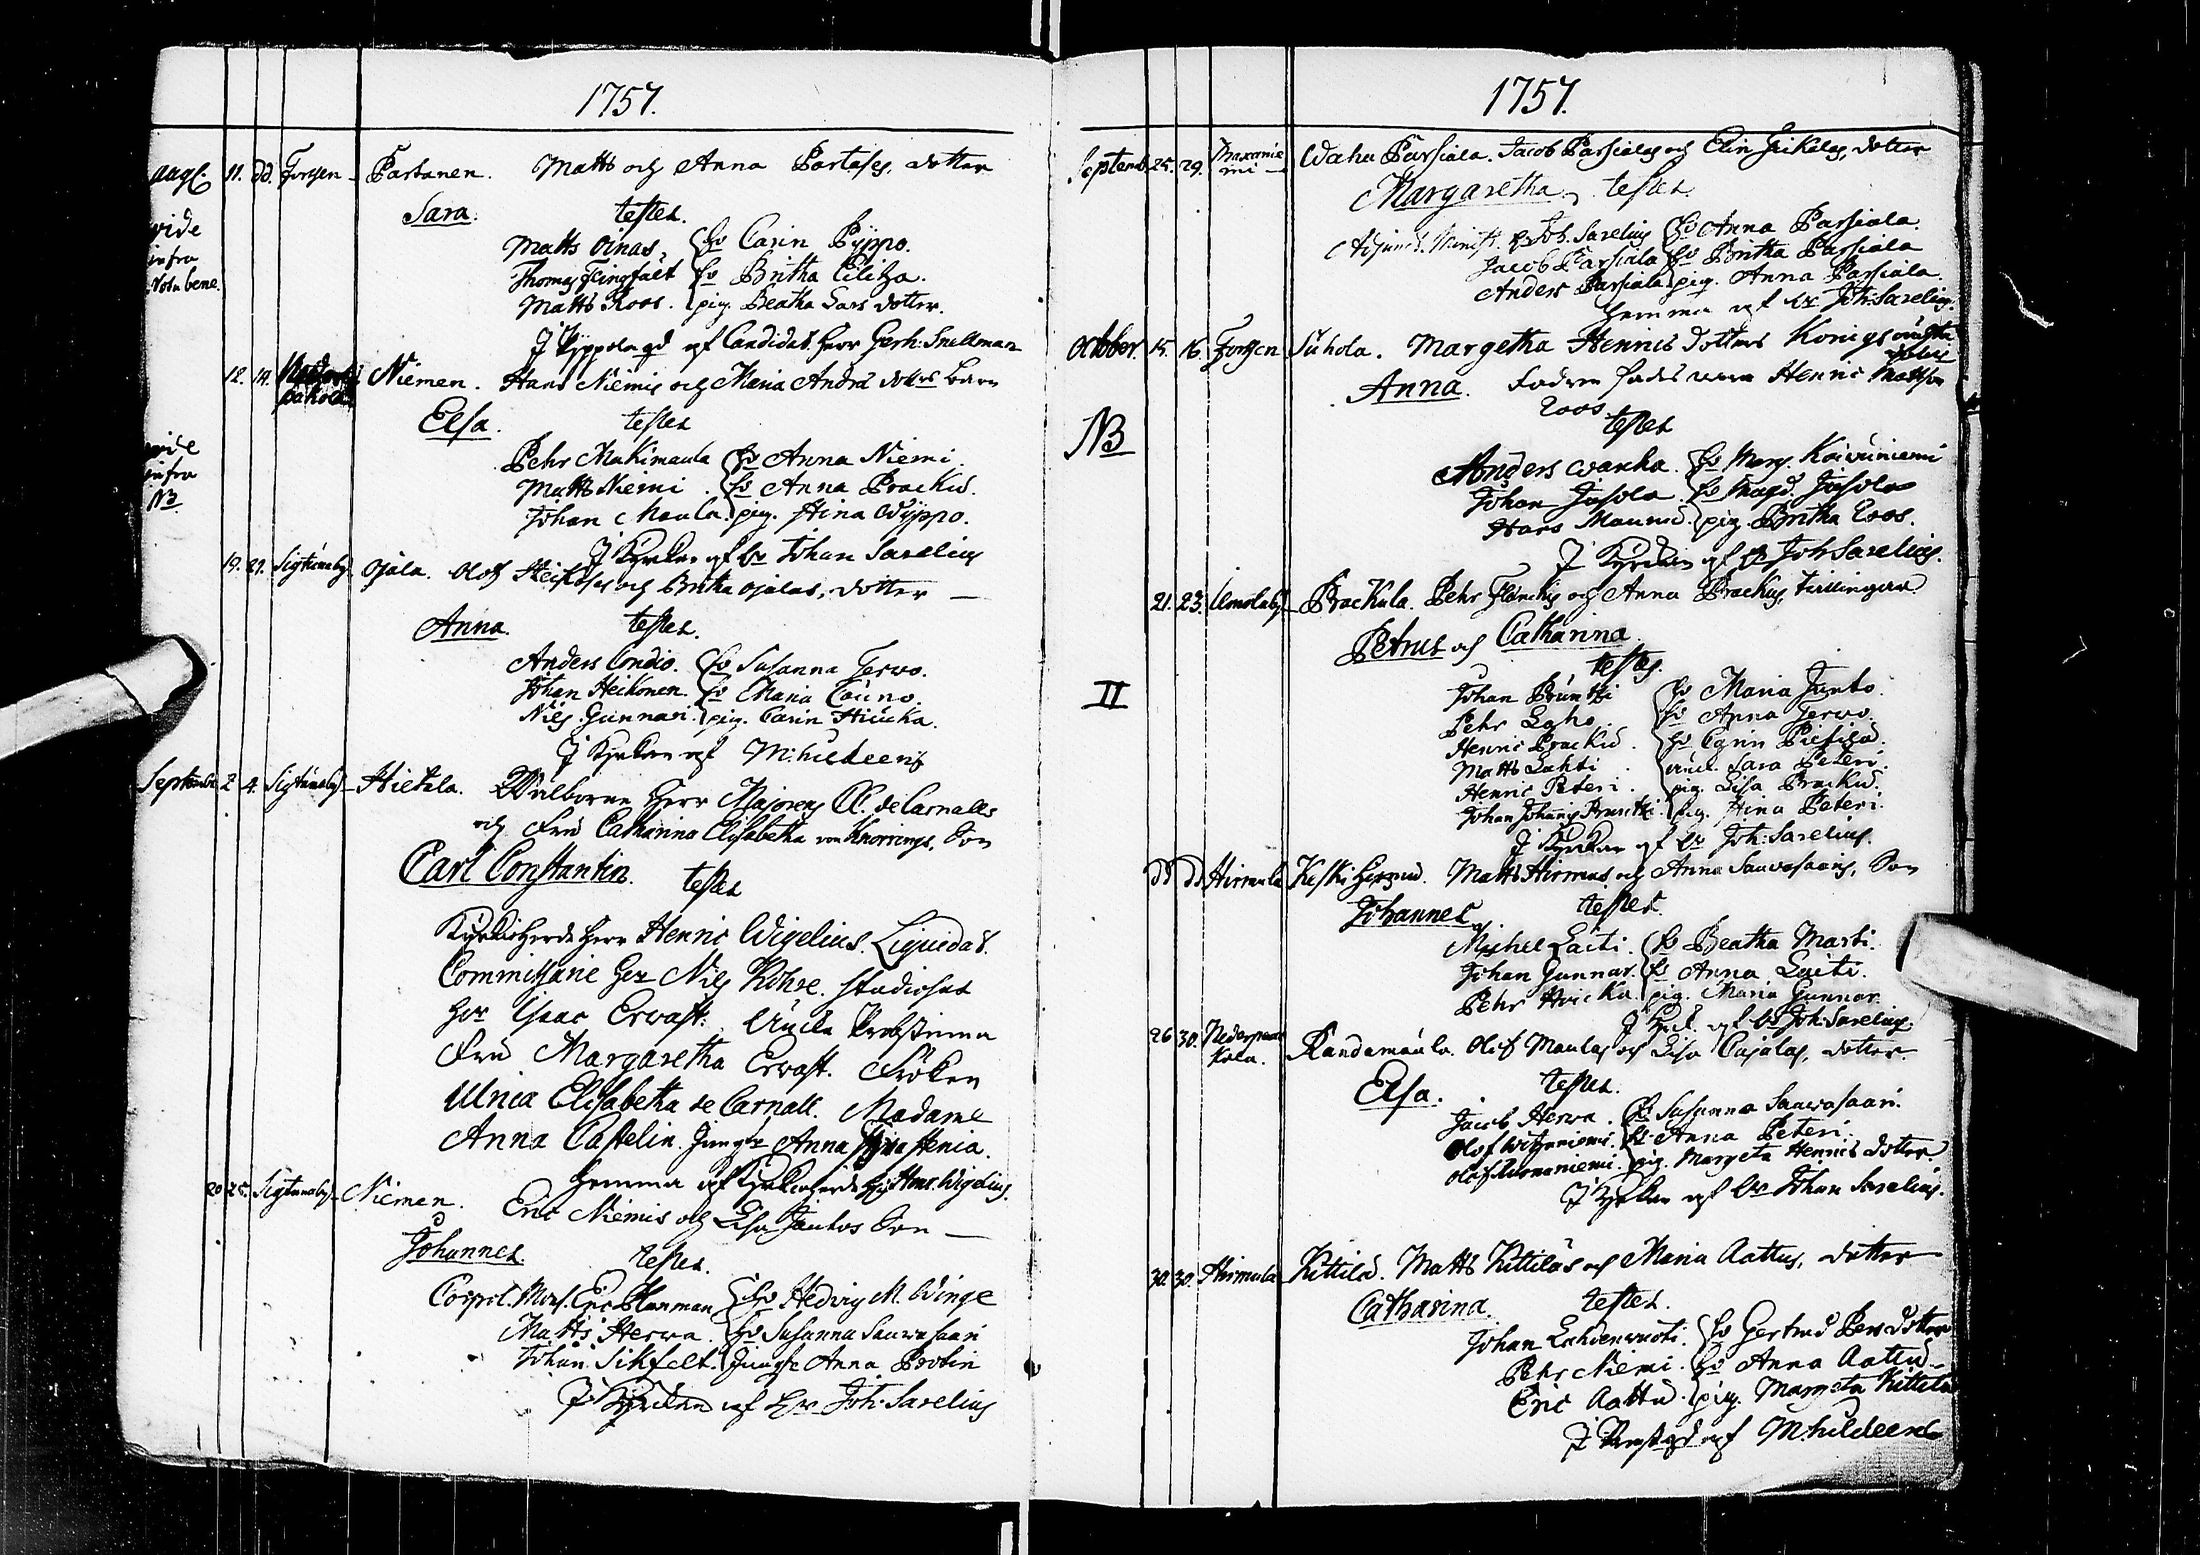 1757.
Aug. 11. dd. Forssen - Partanen. Matts och Anna Partases, dotter
vide Sara. testes.
infra Matts Oinas, hu Carin Pyppo.
Nota bene. Thomas Flingfält hu Britha Eilitza.
Matts Roos. pig. Beatha Lars dotter.
J Pyppola gd af Candidat. Herr Gerh: Snellman
12. 14. Niemen. Hans Niemis och Maria Anders dotters barn
Elsa. testes
vide Pehr Makimaula hu Anna Niemi
infra Matts Niemi. hu Anna Prackus.
NB Johan Maula. pig. Stina Wyppo.
J Kyrkan af hr Johan Sarelius
19. 21. Sigtunaby Ojala. Olof och Britha Ojalas, dotter
Anna. testes.
Anders Condio. hu Susanna Tervo.
Johan Heikonen. hu Maria Launo.
Nils Gunnari. pig. Carin Hiucka.
J Kyrkan af M: hildeens
September 2 4. Sigtunaby Hietala. Wälborne Herr Majorens C. de Carnalls
och Fru Catharina Elisabetha von Knorrings, Son
Carl Constantin. testes
Kyrkioherde Herr Henric Wigelius. Liquidat.
Commissarie Her Nils Röhre. studiosus
Her Isaac Erwast. Probstinna
Fru Margaretha Erwast. Fröken
Ulrica Elisabetha de Carnall. Madame
Anna Castelin. Jungfr Anna
Hemma af Kyrkioherde Hr Henr. Wigelius.
20 25. Sigtunaby Niemen. Eric Niemis och Lisa Juntos Son
Johannes. testes.
Eric Planman hu Hedvig M. Winge
Matts Herva. hu Susanna Sauvasaari
Johan Sikfelt. Jungfr Anna Bostin
J Kyrkan af Hr Joh: Sarelius
1757.
September 25. 29. Maxanie Waha Parsiala. Jacob Parsialas och Elin dotter
mi Margaretha, testes
Adjunct. Minist. hr Joh. Sarelius hu Anna Parsiala.
Jacob Parsiala hu Britha Parsiala
Anders Parsiala pig. Anna Parsiala
hemma af hr Joh: Sarelius.
October. 15. 16. Forssen Suhola. Margetha Henrics dotters
Anna. Henric Mattsson
Roos
NB testes
Anders Wanha. hu Marg. Koivuniemi
Johan Josola. hu Magd. Josola
Hans Maunus. pig. Britha Roos.
J Kyrkan af hr Joh Sarelius.
21. 23. Brackula. Pehr och Anna Brackus, tvillingar
Petrus och Catharina
testes.
II Johan Pruntti hu Maria Junto.
Pehr Laho. hu Anna Tervo.
Henric Brackus. hu Carin Pietilä.
Matts Lahti. Sara Peteri.
Henric Peteri. pig. Lisa Brackus.
Johan Johans Pruntti. pig. Stina Peteri.
J Kyrkan af hr Joh: Sarelius.
dd dd Hirmula Keski Hermus. Matts Hirmus och Anna Sauvasaaris, Son
Johannes testes.
Michel Laiti. hu Beatha Marti.
Johan Gunnar. hu Anna Laiti.
Pehr Hvicka. pig. Maria Gunnar.
J Kyrk. af hr Joh: Sarelius.
26 30. Nederpaa Randamaula. Olof Maulas och Lisa Cajalas, dotter
kola. Elsa. testes.
Jacob Herva. hu Susanna Sauvasaari.
Olof Witzaniemi. hu Anna Peteri.
Olof Rusnaniemi. pig. Margeta Henrics dotter
J Kyrkan af hr Johan Sarelius.
30. 30. Hirmula Kittilä. Matts Kittiläs och Maria Aattus, dotter
Catharina. testes.
Johan Lahdenwuoti. hu Gertrud Pers dotter
Pehr Niemi. hu Anna Aattu
Eric Aattu. pig. Margeta Kittilä
J Prästgd af M: hildeens